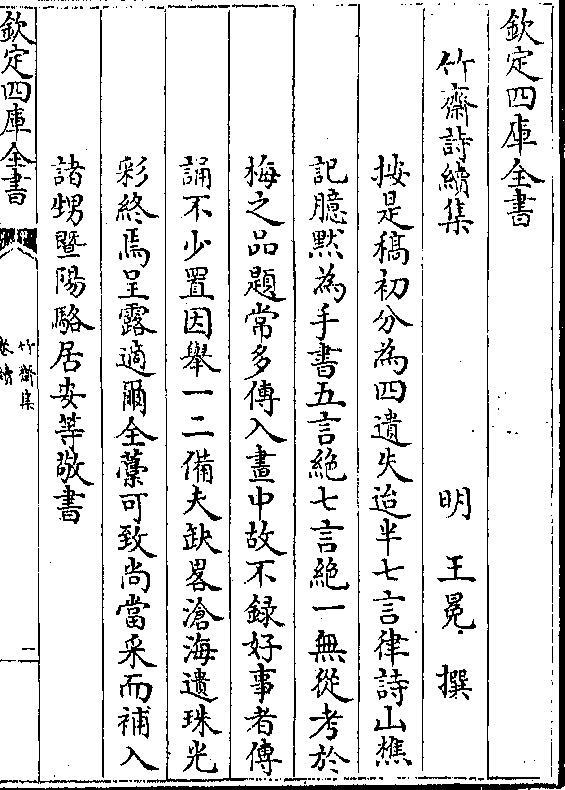 欽定四庫全書
竹齋詩續集
明 王冕 撰
按是稿初分為四遺失迨半七言律詩山樵
記臆黙為手書五言絶七言絶一無從考於
梅之品題常多傳入畫中故不録好事者傳
誦不少置因舉一二備夫缺畧滄海遺珠光
彩終焉呈露適爾全藁可致尚當采而補入
諸甥暨陽駱居安等敬書
欽定四庫全書
竹齋集
卷續
一